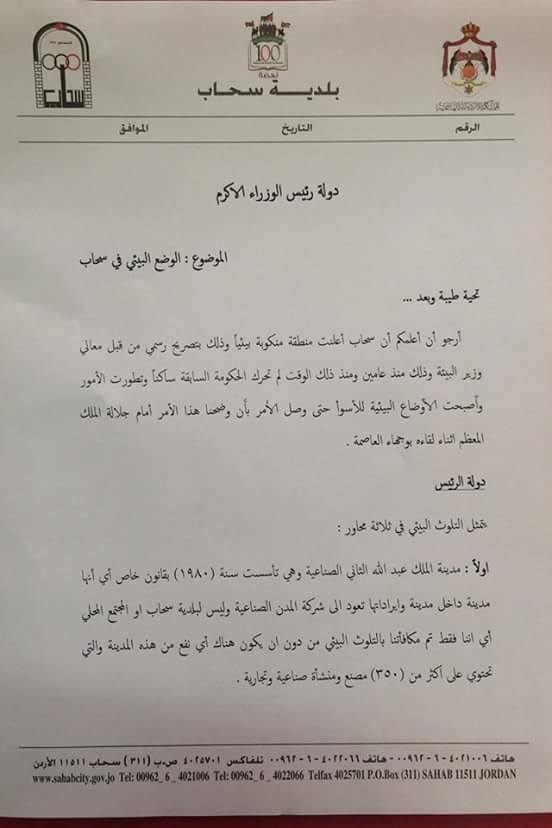 سحاب
100
نهضة
بلدية سحاب
الرقم التاريخ الموافق
دولة رئيس الوزراء الاكرم
الموضوع : الوضع البيئي في سحاب
تحية طيبة وبعد ...
أرجو أن أعلمكم أن سحاب أعلنت منطقة منكوبة بيئياً وذلك بتصريح رسمي من قبل معالي
وزير البيئة وذلك منذ عامين ومنذ ذلك الوقت لم تحرك الحكومة السابقة ساكناً وتطورت الأمور
وأصبحت الأوضاع البيئية للأسوأ حتى وصل الأمر بأن وضحنا هذا الأمر أمام جلالة الملك
المعظم اثناء لقاءه بوجهاء العاصمة .
دولة الرئيس
يتمثل التلوث البيئي في ثلاثة محاور :
اولاً : مدينة الملك عبد الله الثاني الصناعية وهي تأسست سنة (١٩٨٠) بقانون خاص أي أنها
مدينة داخل مدينة وايراداتها تعود الى شركة المدن الصناعية وليس لبلدية سحاب او المجتمع المحلي
أي اننا فقط تم مكافأتنا بالتلوث البيئي من دون ان يكون هناك أي نفع من هذه المدينة والتي
تحتوي على اكثر من (٣٥٠) مصنع ومنشأة صناعية وتجارية .
هاتف ٤٠٢١٠٠٦ - ٦ - ٠٠٩٦٢ - هاتف ٤٠٢٢٠٦٦ - ٦ - ٠٠٩٦٢ تلفاكس ٤٠٢٥٧٠١ ص.ب (٣١١) سحاب ١١٥١١ الأردن
www.sahabcity.gov.jo Tel: 00962_ 6 _ 4021006 Tel: 00962_ 6 _ 4022066 Telfax 4025701 P.O.Box (311) SAHAB 11511 JORDAN